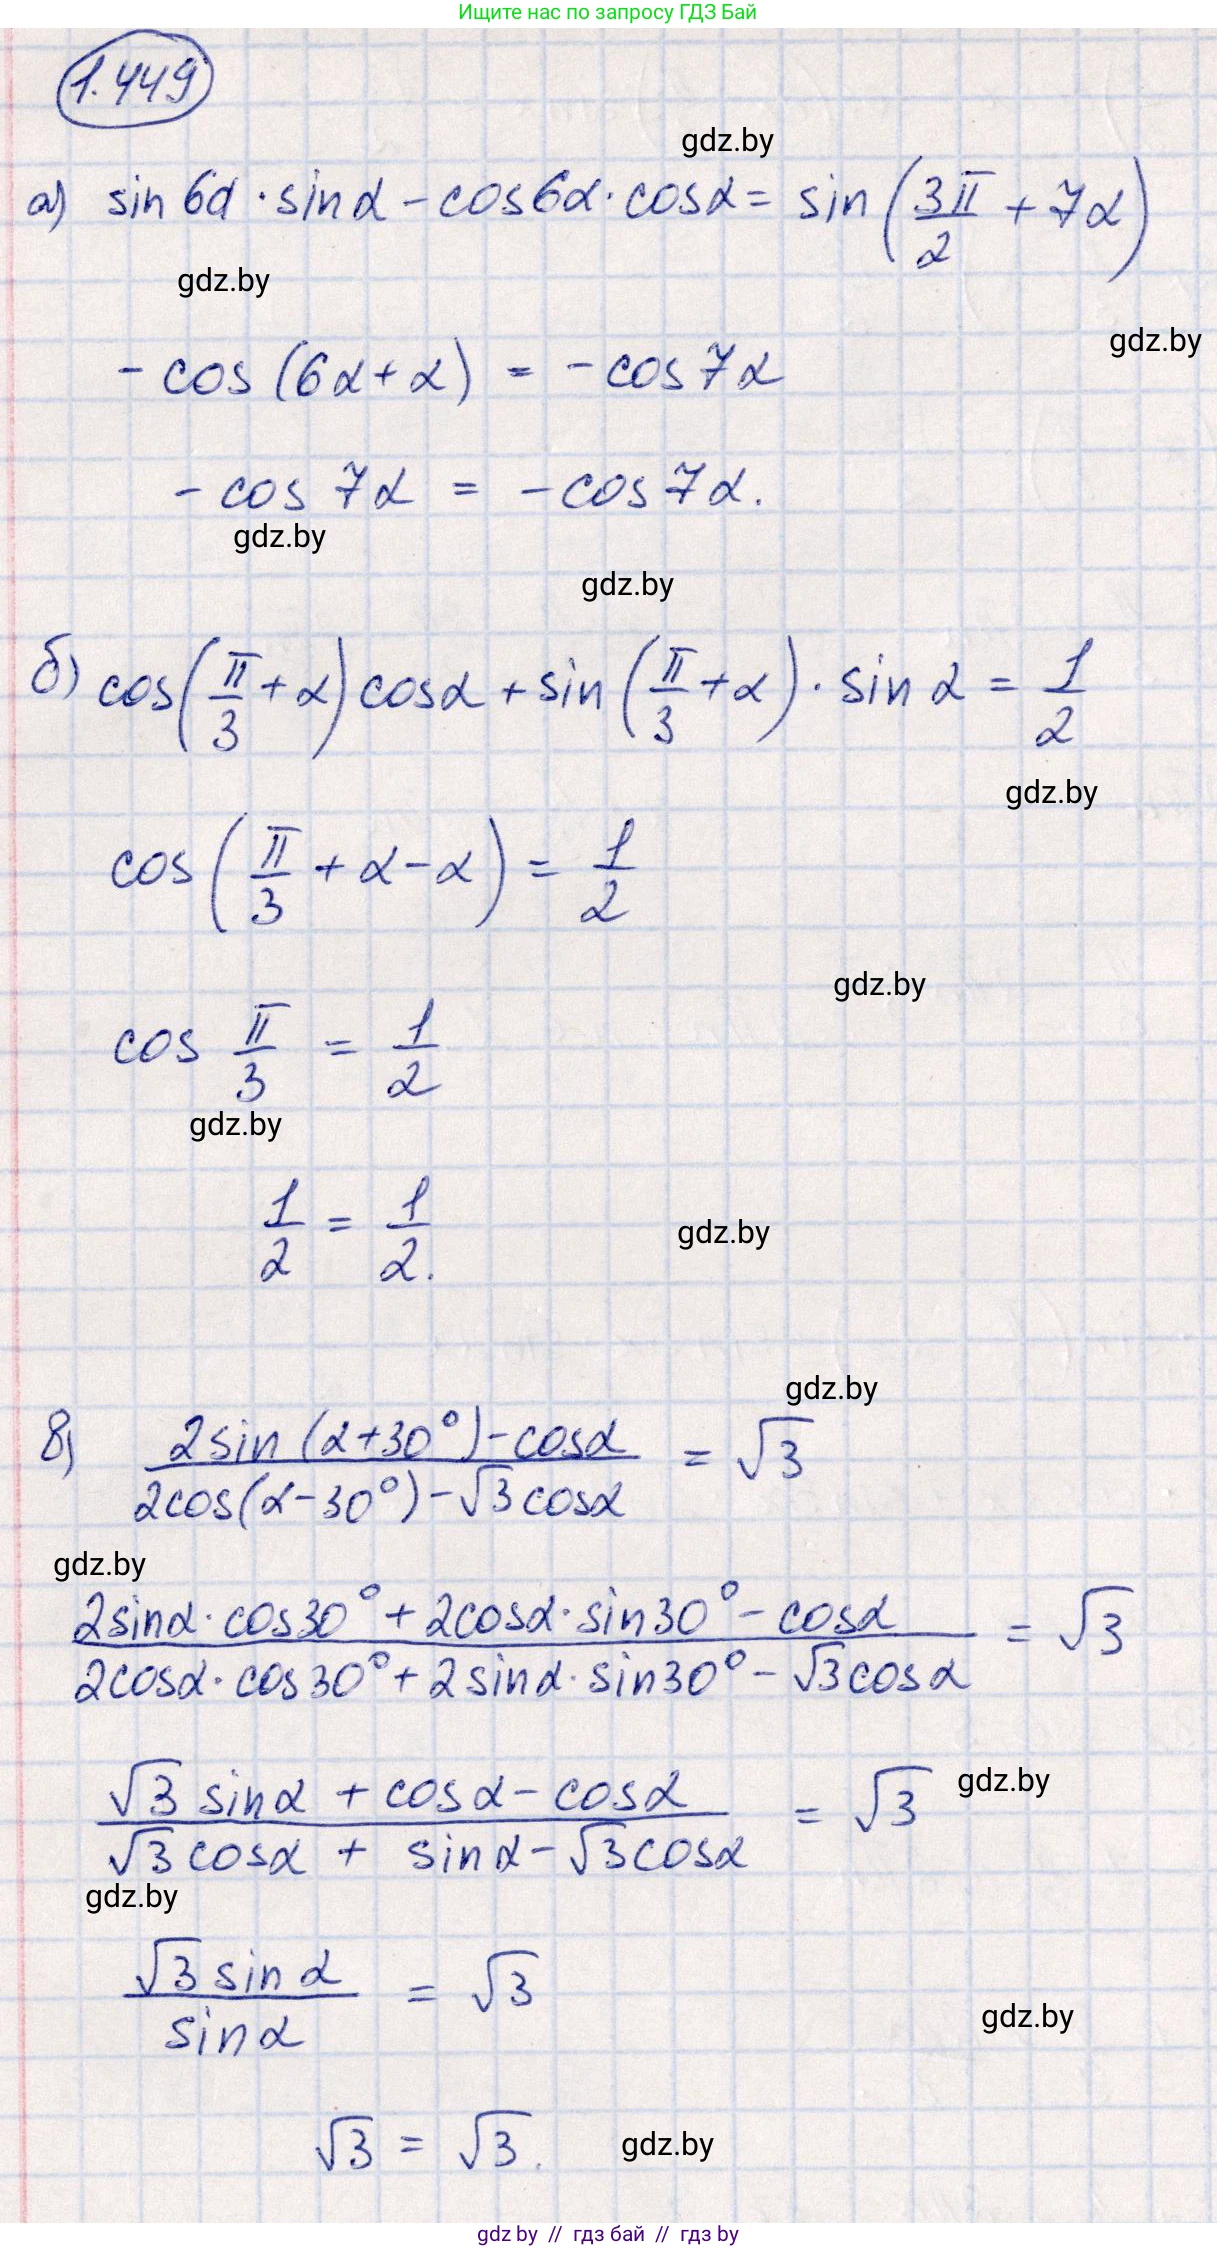 Ищите нас по запросу ГДЗ Бай
1.449
gdz.by
а) sin 6α · sin α - cos 6α · cos α = sin (3π/2 + 7α)
gdz.by
gdz.by
- cos (6α + α) = - cos 7α
- cos 7α = - cos 7α.
gdz.by
gdz.by
б) cos (π/3 + α) cos α + sin (π/3 + α) · sin α = 1/2
gdz.by
cos (π/3 + α - α) = 1/2
gdz.by
cos π/3 = 1/2
gdz.by
1/2 = 1/2.
gdz.by
gdz.by
в) (2 sin (α + 30°) - cos α)/(2 cos (α - 30°) - √3 cos α) = √3
gdz.by
(2 sin α · cos 30° + 2 cos α · sin 30° - cos α)/(2 cos α · cos 30° + 2 sin α · sin 30° - √3 cos α) = √3
(√3 sin α + cos α - cos α)/(√3 cos α + sin α - √3 cos α) = √3
gdz.by
gdz.by
(√3 sin α)/(sin α) = √3
gdz.by
√3 = √3.
gdz.by
gdz.by // гдз бай // гдз by